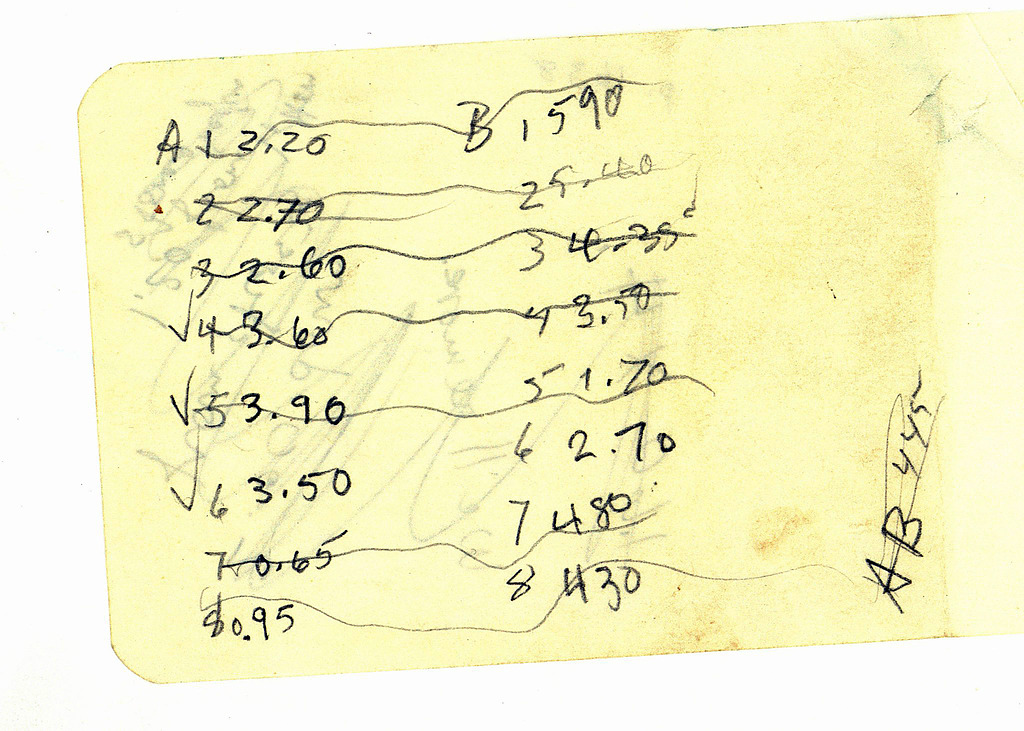 A 1 2.20 B 1 590
2 2.70 2 5.40
3 2.60 3 4.35
√4 3.60 4 3.50
√5 3.90 5 1.70
√6 3.50 6 2.70
7 0.65 7 480
8 0.95 8 430
AB 445